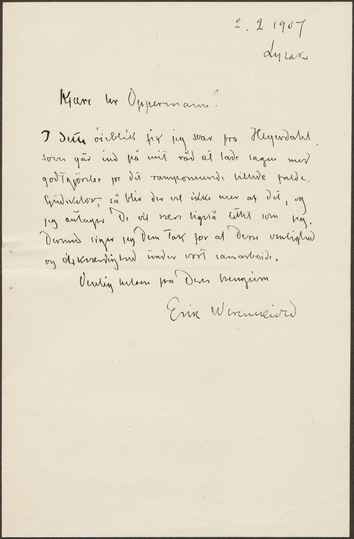 2. 2 1907
Lysaker
Kjære hr Oppermann!
I dette øieblik fik jeg svar fra Heyerdahl
som går ind på mit råd at lade sagen med
godtgjørelse for det
så blir der vel ikke mer af det, og
jeg antager De vil være ligeså som jeg.
Dermed siger jeg Dem Tak for al Deres venlighed
og elskværdighed under vort samarbeide.
Venlig hilsen fra Deres hengivne
Erik Werenskiold